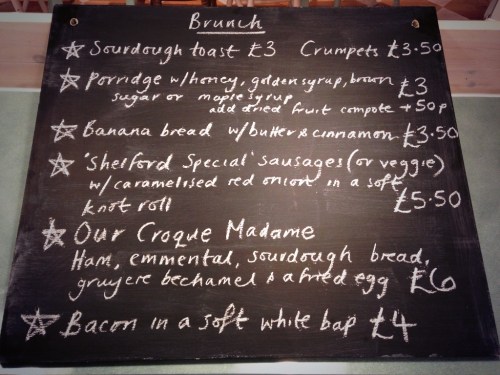 Brunch
☆ Sourdough toast £3 Crumpets £3.50
☆ Porridge w/honey, golden syrup, brown £3
sugar or maple syrup
add dried fruit compote + 50p
☆ Banana bread w/butter & cinnamon £3.50
☆ 'Shelford Special' sausages (or veggie)
w/ caramelised red onion in a soft
knot roll £5.50
☆ Our Croque Madame
Ham, emmental, sourdough bread,
gruyere bechamel & a fried egg £6
☆ Bacon in a soft white bap £4